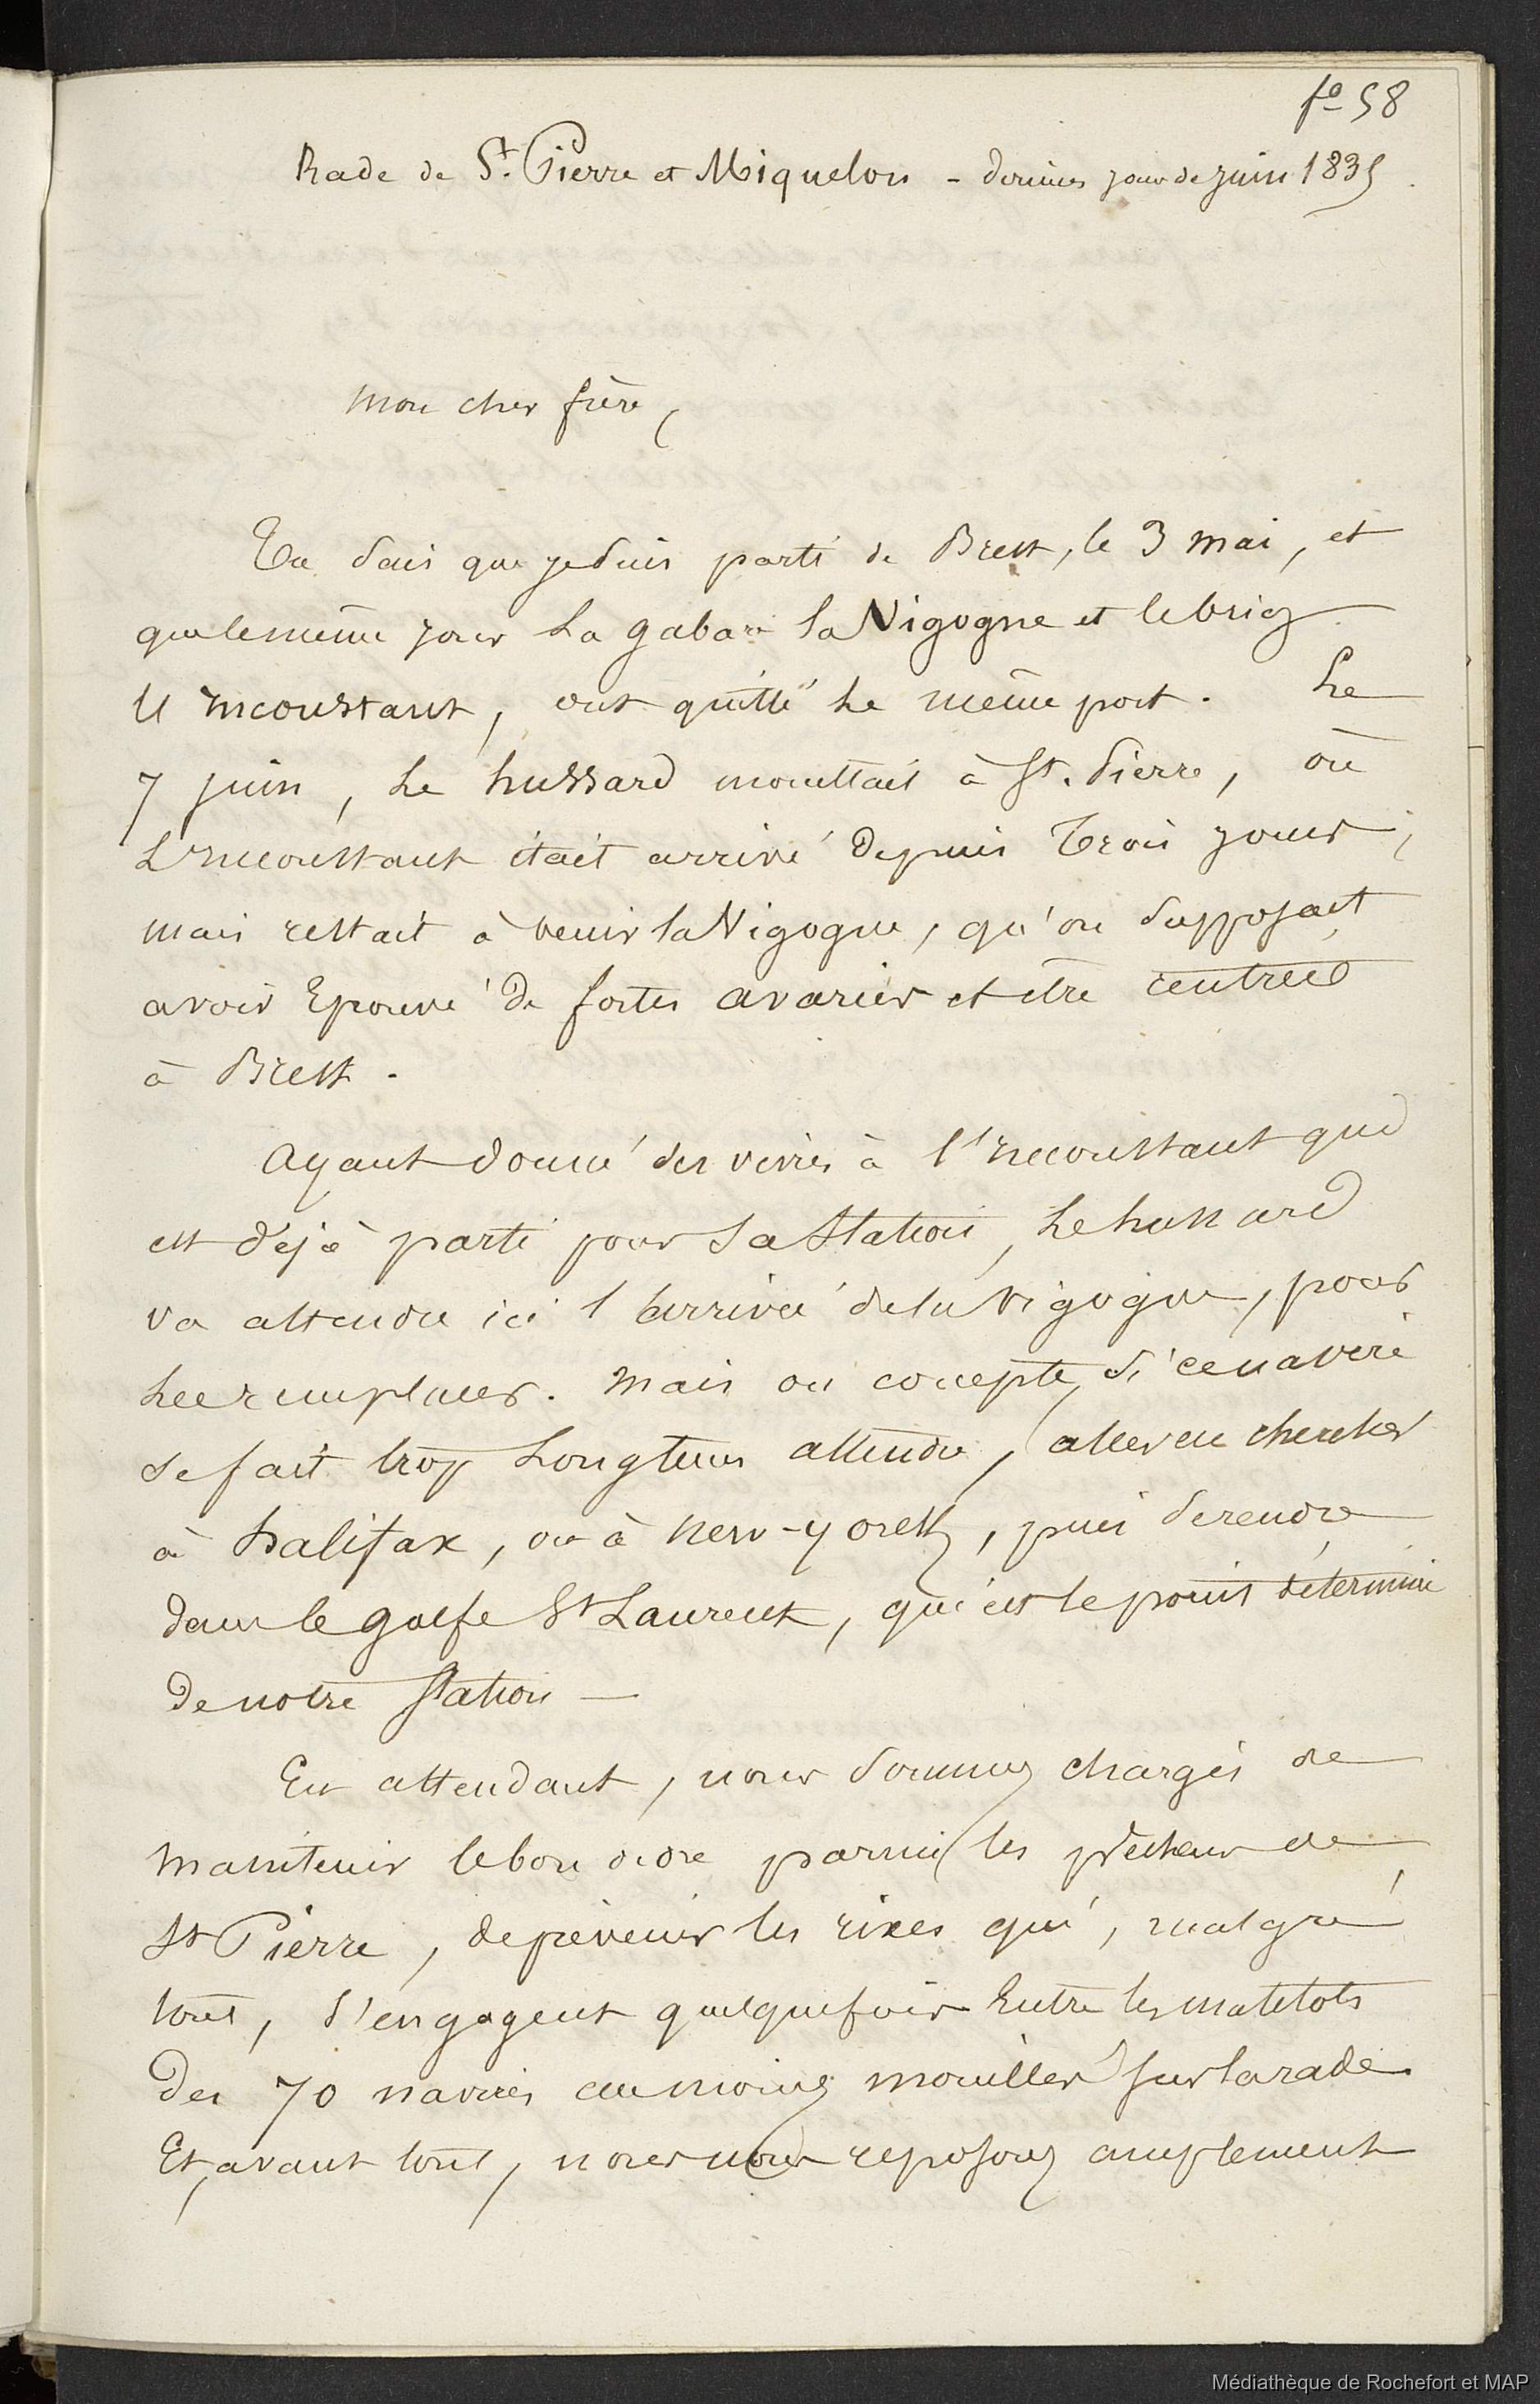 fo 58
Rade de St. Pierre et Miquelon - derniers jours de juin 1835.
Mon cher frère,
Tu sais que je suis parti de Brest, le 3 mai, et
que le même jour la gabare la Vigogne et le brig
l'Inconstant, ont quitté le même port. Le
7 juin, le hussard mouillait à St. Pierre, où
L'Inconstant était arrivé depuis trois jours ;
mais restait à venir la Vigogne, qu'on supposait
avoir éprouvé de fortes avaries et être rentrée
à Brest.
Ayant donné des vivres à l'Inconstant qui
est déjà parti pour sa station, le hussard
va attendre ici l'arrivée de la Vigogne, pour
les remplacer. Mais on compte, si ce navire
se fait trop longtems attendre, aller en chercher
à halifax, ou à New-yorck, puis se rendre
dans le golfe St Laurent, qui est le point déterminé
de notre station —
En attendant, nous sommes chargés de
maintenir le bon ordre parmi les pêcheurs de
St Pierre, de prévenir les rixes qui, malgré
tout, s'engagent quelquefois entre les matelots
des 70 navires au moins mouillés sur la rade.
Et, avant tout, nous nous reposons amplement
Médiathèque de Rochefort et MAP